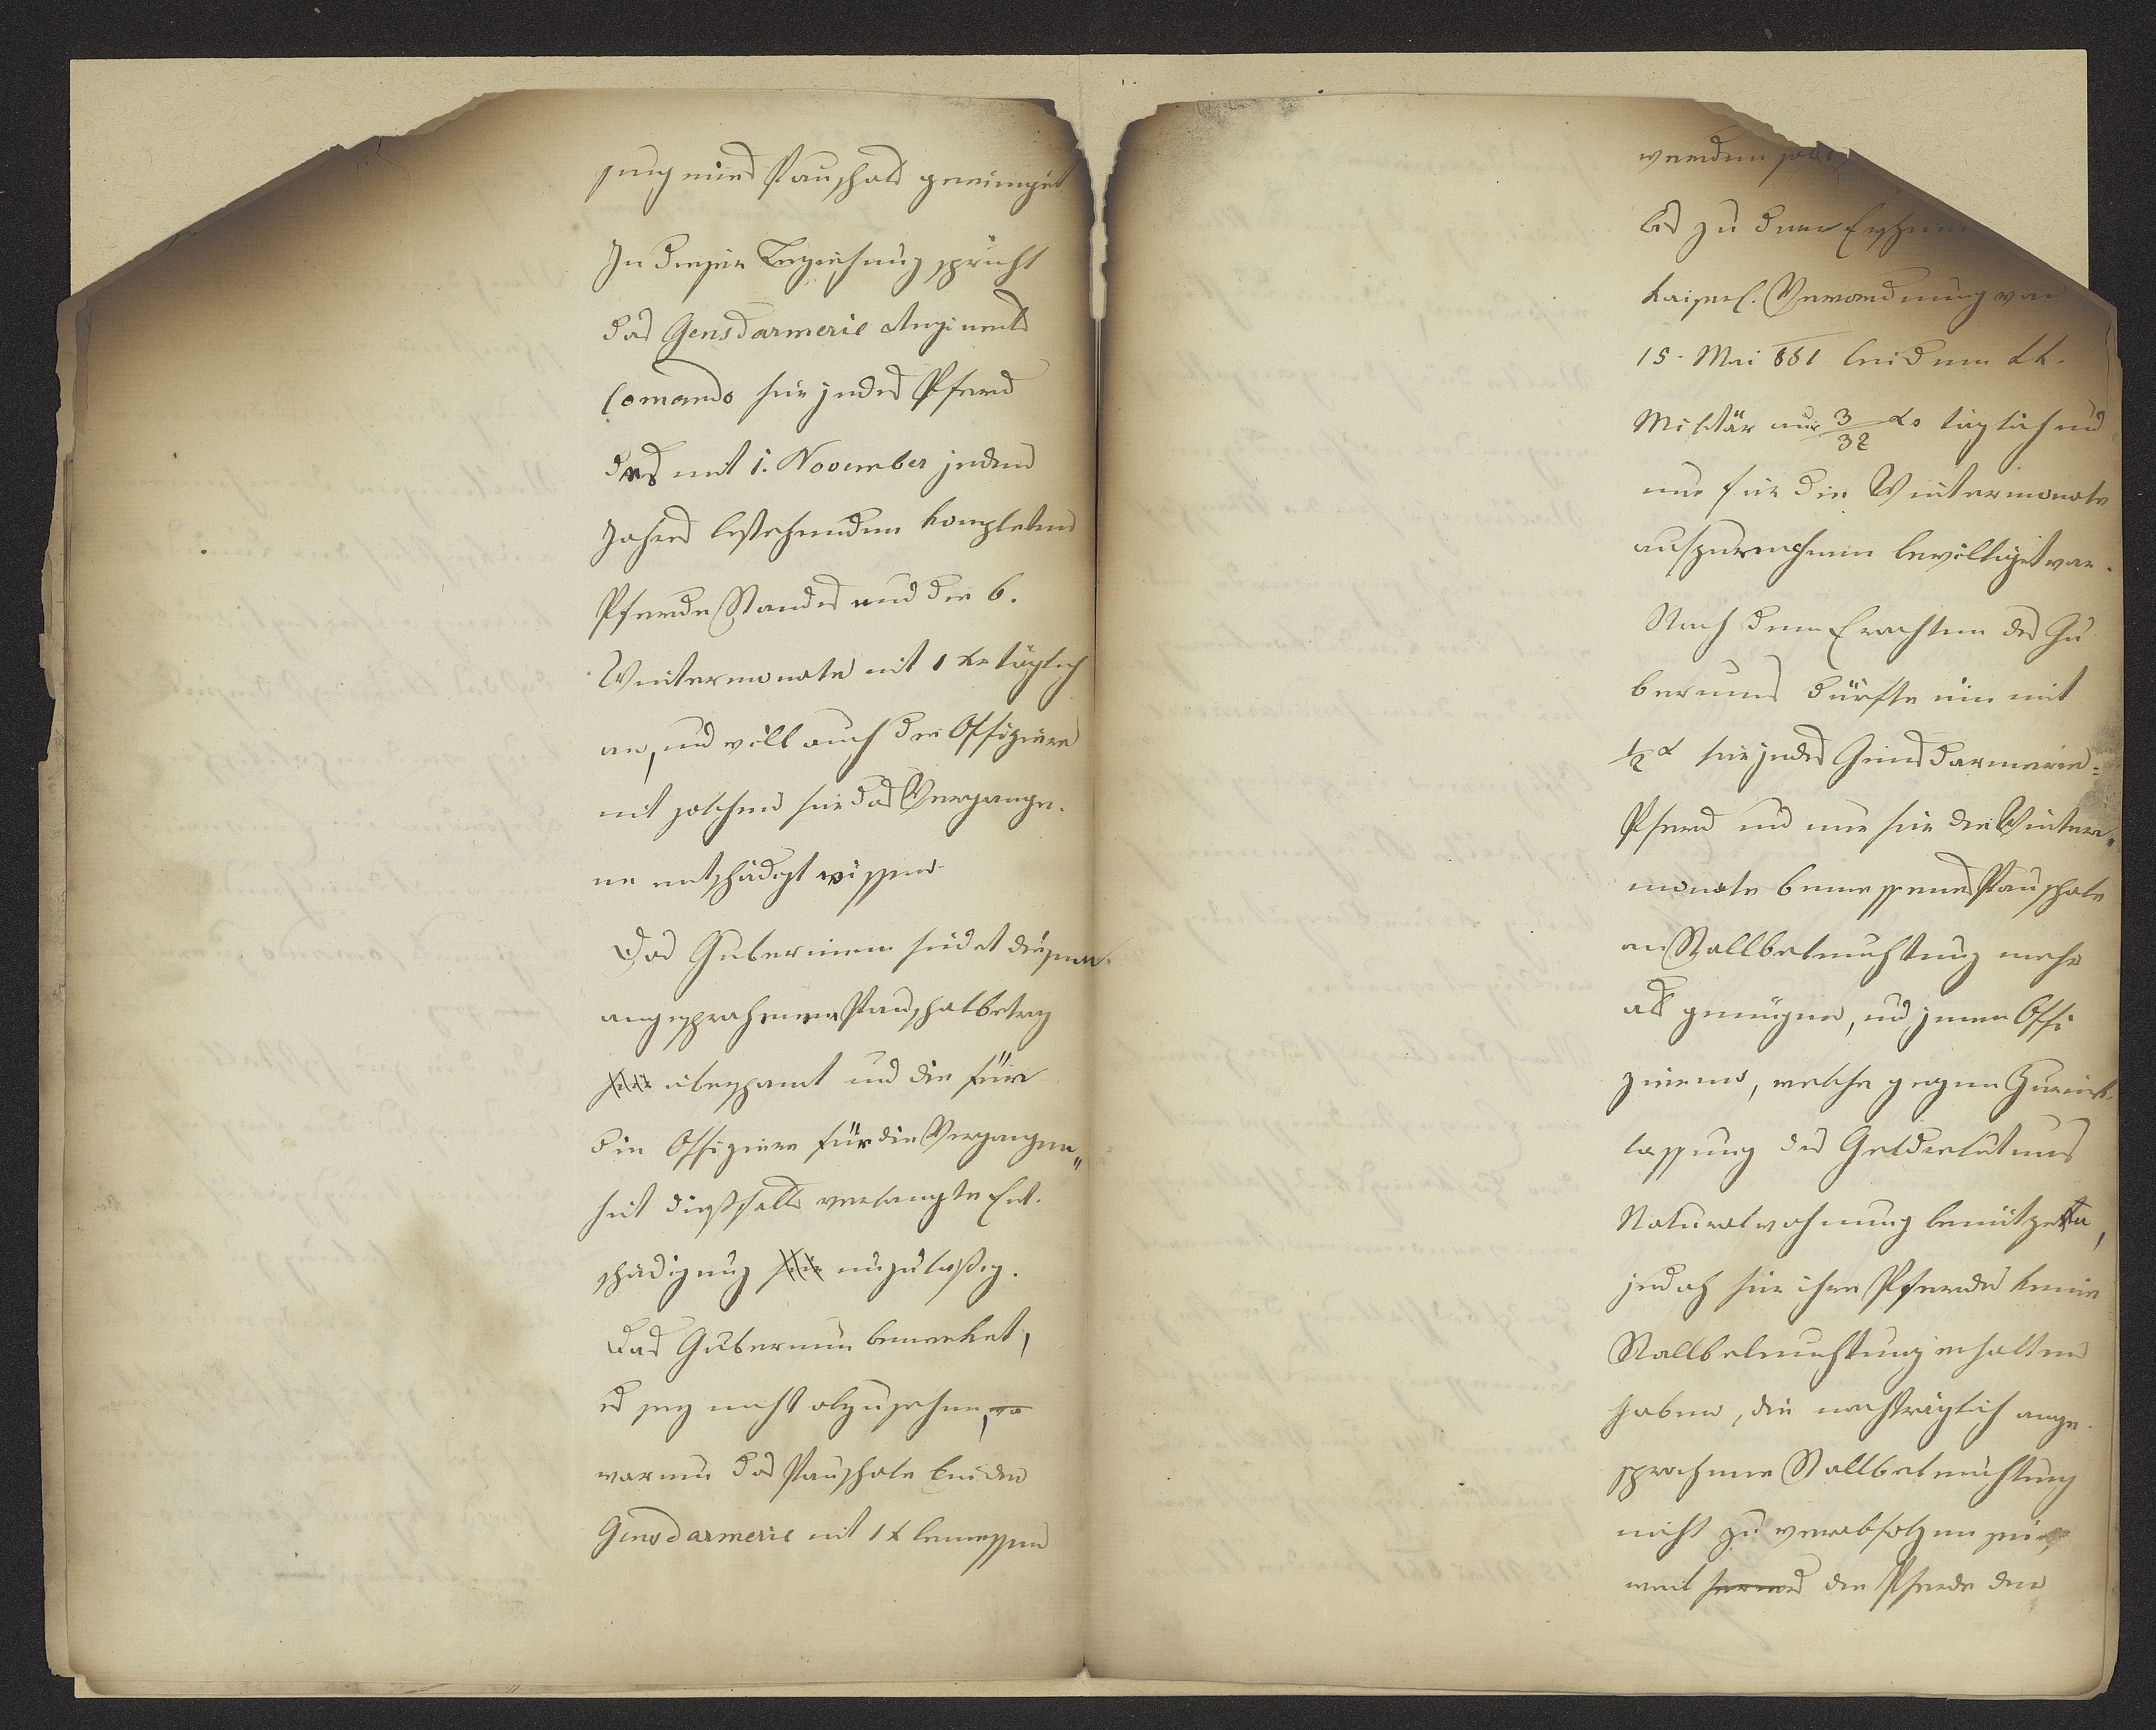 sung eines Pauschals geeinigt
In dieser Beziehung spricht
das Gensdarmerie Regiments
Comando für jedes Pferd
des mit 1. November jeden
Jahres bestehenden kompleten
Pferde Standes und die 6.
Wintermonate mit 1 xr täglich
an, und will auch die Offiziere
mit solchen für das Vergange-
ne entschädigt wissen.
Das Gubernium findet diesen
angesprochenen Pauschalbetrag
überspannt und die für
die Offiziere für die Vergangen„
heit dießfalls verlangte Ent-
schädigung unzuläßig.
Das Gubernium bemerket,
es sey nicht abzusehen,
warum das Pauschale bei der
Gensdarmerie mit 1 x bemessen
werden soll,
bis zu dem Erschein
kaiserl. Verordnung vom
15. Mai 851 bei dem kk.
Militär nur 3/32 xr täglich und
nur für die Wintermonate
aufzurechnen bewilliget war.
Nach dem Erachten des Gu
berniums dürfte ein mit
1/2 x für jedes Gensdarmerie=
Pferd und nur für die Winter„
monate bemessenes Pauschale
an Stallbeleuchtung mehr
als genügen, und jenen Offi
zieren, welche gegen Zurück-
lassung des Geldrelutums
Naturalwohnung benützten,
jedoch für ihre Pferde keine
Stallbeleuchtung erhalten
haben, die nachträglich ange-
sprochene Stallbeleuchtung
nicht zu verabfolgen sein,
weil die Pferde der